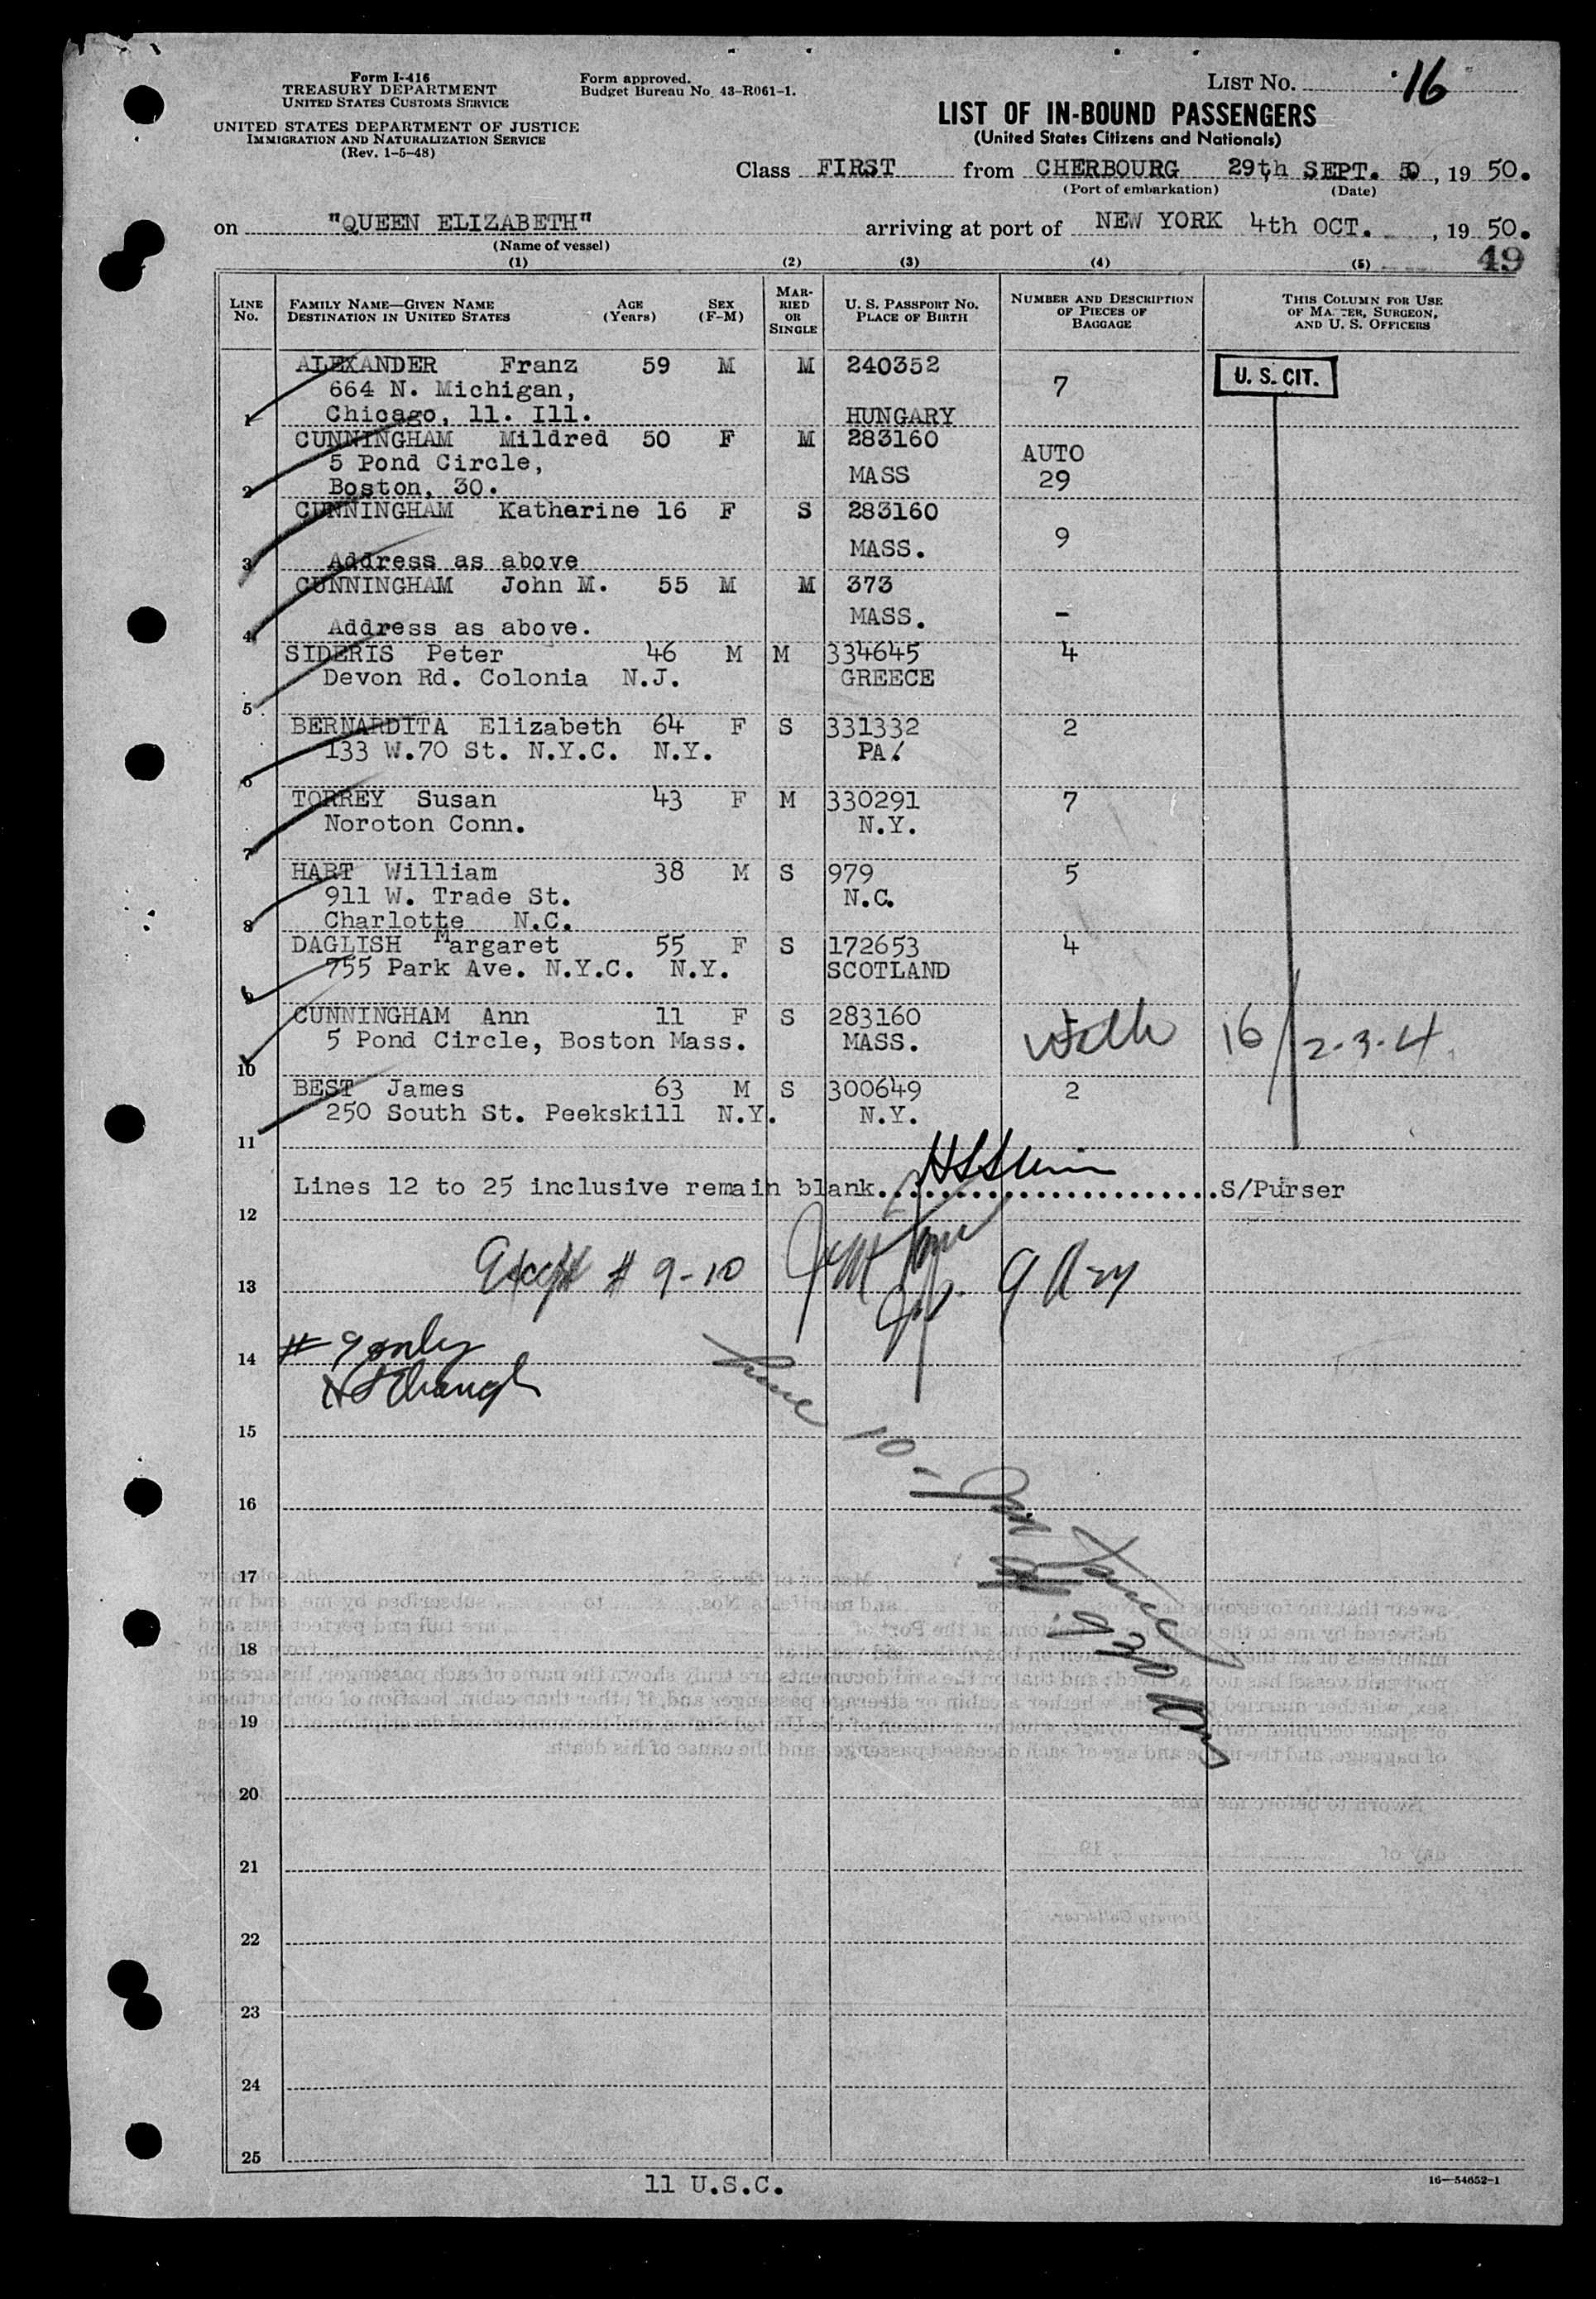 Form I-416
TREASURY DEPARTMENT
UNITED STATES CUSTOMS SERVICE
UNITED STATES DEPARTMENT OF JUSTICE
IMMIGRATION AND NATURALIZATION SERVICE
(Rev. 1-5-48)
Form approved.
Budget Bureau No. 43-R061-1.
LIST NO. 16
LIST OF IN-BOUND PASSENGERS
(United States Citizens and Nationals)
Class FIRST from CHERBOURG 29th SEPT. , 19 50.
(Port of embarkation) (Date)
on "QUEEN ELIZABETH" arriving at port of NEW YORK 4th OCT. , 19 50.
(Name of vessel)
49
(1) (2) (3) (4) (5)
LINE No.
FAMILY NAME—GIVEN NAME
DESTINATION IN UNITED STATES
AGE (Years)
SEX (F-M)
MARRIED OR SINGLE
U. S. PASSPORT NO.
PLACE OF BIRTH
NUMBER AND DESCRIPTION OF PIECES OF BAGGAGE
THIS COLUMN FOR USE OF MASTER, SURGEON, AND U. S. OFFICERS
ALEXANDER Franz 59 M M 240352
664 N. Michigan, 7 U. S. CIT.
1 Chicago, 11. Ill. HUNGARY
CUNNINGHAM Mildred 50 F M 283160
5 Pond Circle, MASS AUTO
2 Boston, 30. 29
CUNNINGHAM Katharine 16 F S 283160
9
3 Address as above MASS.
CUNNINGHAM John M. 55 M M 373
4 Address as above. MASS. -
SIDERIS Peter 46 M M 334645 4
Devon Rd. Colonia N.J. GREECE
5
BERNARDITA Elizabeth 64 F S 331332 2
133 W.70 St. N.Y.C. N.Y. PA.
6
TORREY Susan 43 F M 330291 7
Noroton Conn. N.Y.
7
HART William 38 M S 979 5
911 W. Trade St. N.C.
8 Charlotte N.C.
DAGLISH Margaret 55 F S 172653 4
755 Park Ave. N.Y.C. N.Y. SCOTLAND
9
CUNNINGHAM Ann 11 F S 283160 -
5 Pond Circle, Boston Mass. MASS. with 16/2-3-4
10
BEST James 63 M S 300649 2
250 South St. Peekskill N.Y. N.Y.
11
Lines 12 to 25 inclusive remain blank. S/Purser
12
Except # 9-10
13
# 9 only
14
15
10
16
17
18
19
20
21
22
23
24
25
11 U.S.C.
16—54652-1